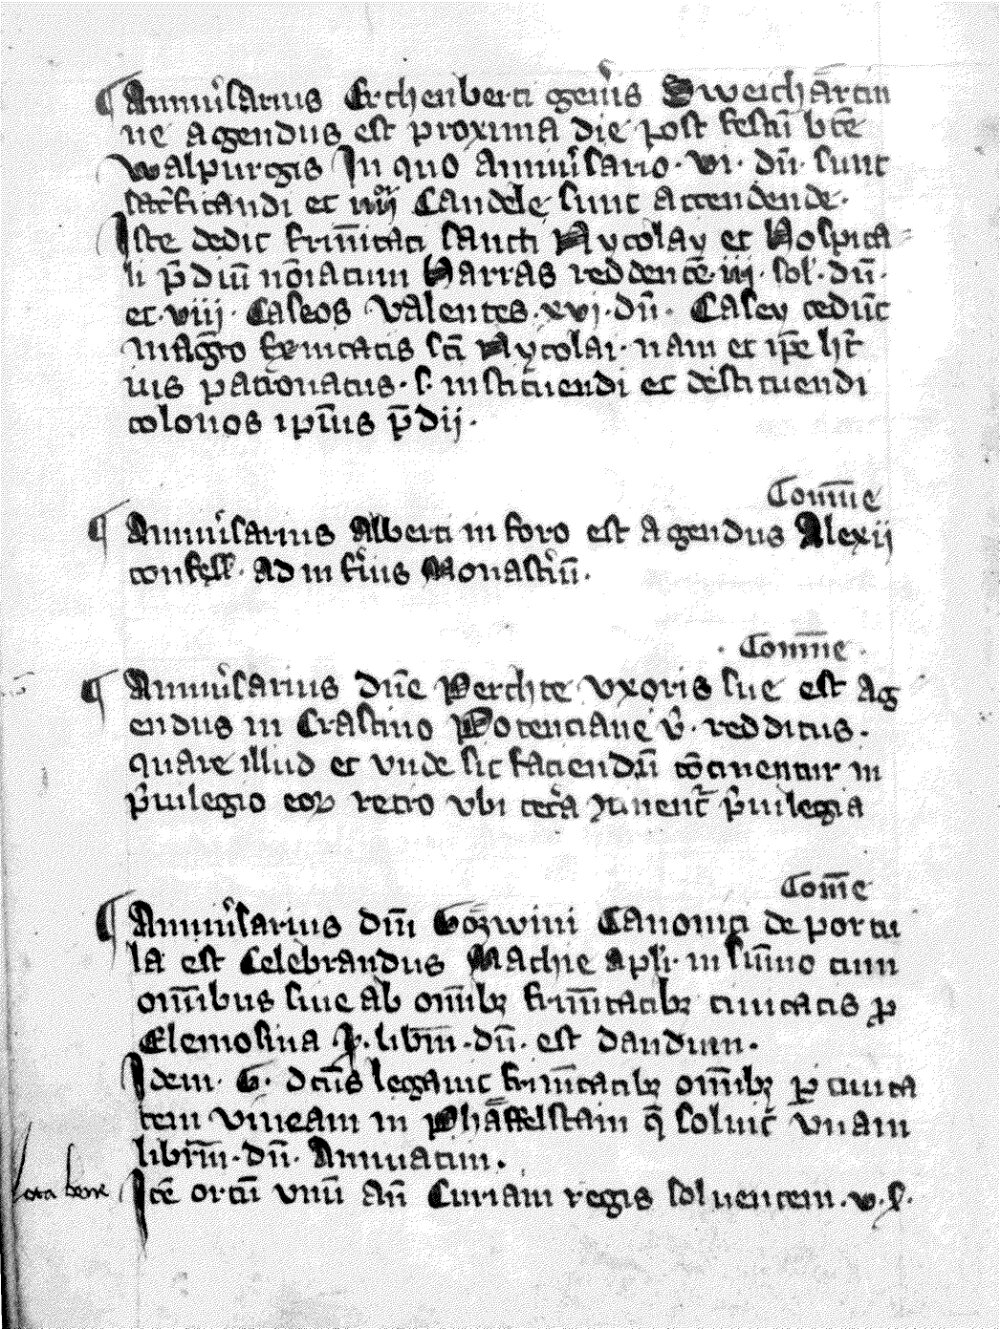 ¶ Anniu'sarius Erchenberti gen'is Sweichartin
ne agendus est proxima die post festū btē
walpurgis In quo Anniu'sario · vi · dñ · sunt
sac'ficandi et iiij Candele sunt accendende ·
Iste dedit frat'nitati sancti Nycolay et hospita
li p̄diū nōiatum Harras reddentē · iij · sol · dñ ·
et · viij · Caseos valentes · xvi · dñ · Casey cedūt
magr̄o frat'nitatis sc̄i Nycolai · nam et ip̄e h't
ius patronatus · s · instituendi et destituendi
colonos ip̄ius p̄dij ·
Com̄e
¶ Anniu'sarius Alberti in foro est agendus Alexij
confess · Ad inf'ius Monast'iū ·
· Com̄e ·
¶ Anniu'sarius dn̄e Perchte vxoris sue est Ag
endus in Crastino Potenciane v' · redditus ·
quare illud et vnde sic faciendū cōtinentur in
p'uilegio eoꝝ retro vbi cet'a ꝯtinent' p'uilegia
Com̄e
¶ Anniu'sarius dn̄i Gozwini Canonici de portu
la est Celebrandus Mathie apl'i · in sūmo cum
om̄ibus siue ab om̄ibꝫ frat'nitatibꝫ ciuitatis ꝓ
Elemosina j · libr̄m · dñ · est dandum ·
Idem · G · dc̄us legauit frat'nitatibꝫ om̄ibꝫ ꝑ ciuita
tem vineam in Phaffelstain q̄ soluit vnam
libr̄m · dñ · Annuatim ·
Itē ortū vnū an̄ Curiam regis soluentem · v · s ·
Nota bene